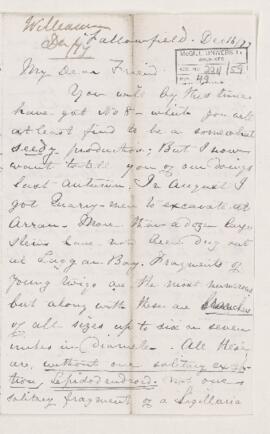 Williamson
Fallowfield. Dec 16/77
McGILL UNIVERSITY
ARCHIVES
ACC. NO. 2211/59
REF. 49
My Dear Friend.
You will by this time
have got No 8 – which you will
at least find to be a somewhat
seedy production; But I now
want to tell you of our doings
last Autumn. In August I
got Quarry-men to excavate at
Arran. More than a dozen large
stems have now been dug out
at Laggan Bay. Fragments of
young twigs are the most numerous
but along with these are branches
of all sizes up to six or seven
inches in diameter. All these
are, without one solitary excep-
tion, Lepidodendroid. Not one
solitary fragment of a Sigillaria